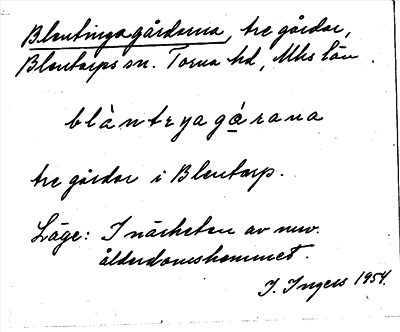 Blentingagårdarna, tre gårdar,
Blentarps sn. Torna hd, Mhs län.
blàntɪyagá̱rana
tre gårdar i Blentarp.
Läge: I närheten av nuv.
ålderdomshemmet.
I. Ingers 1954.